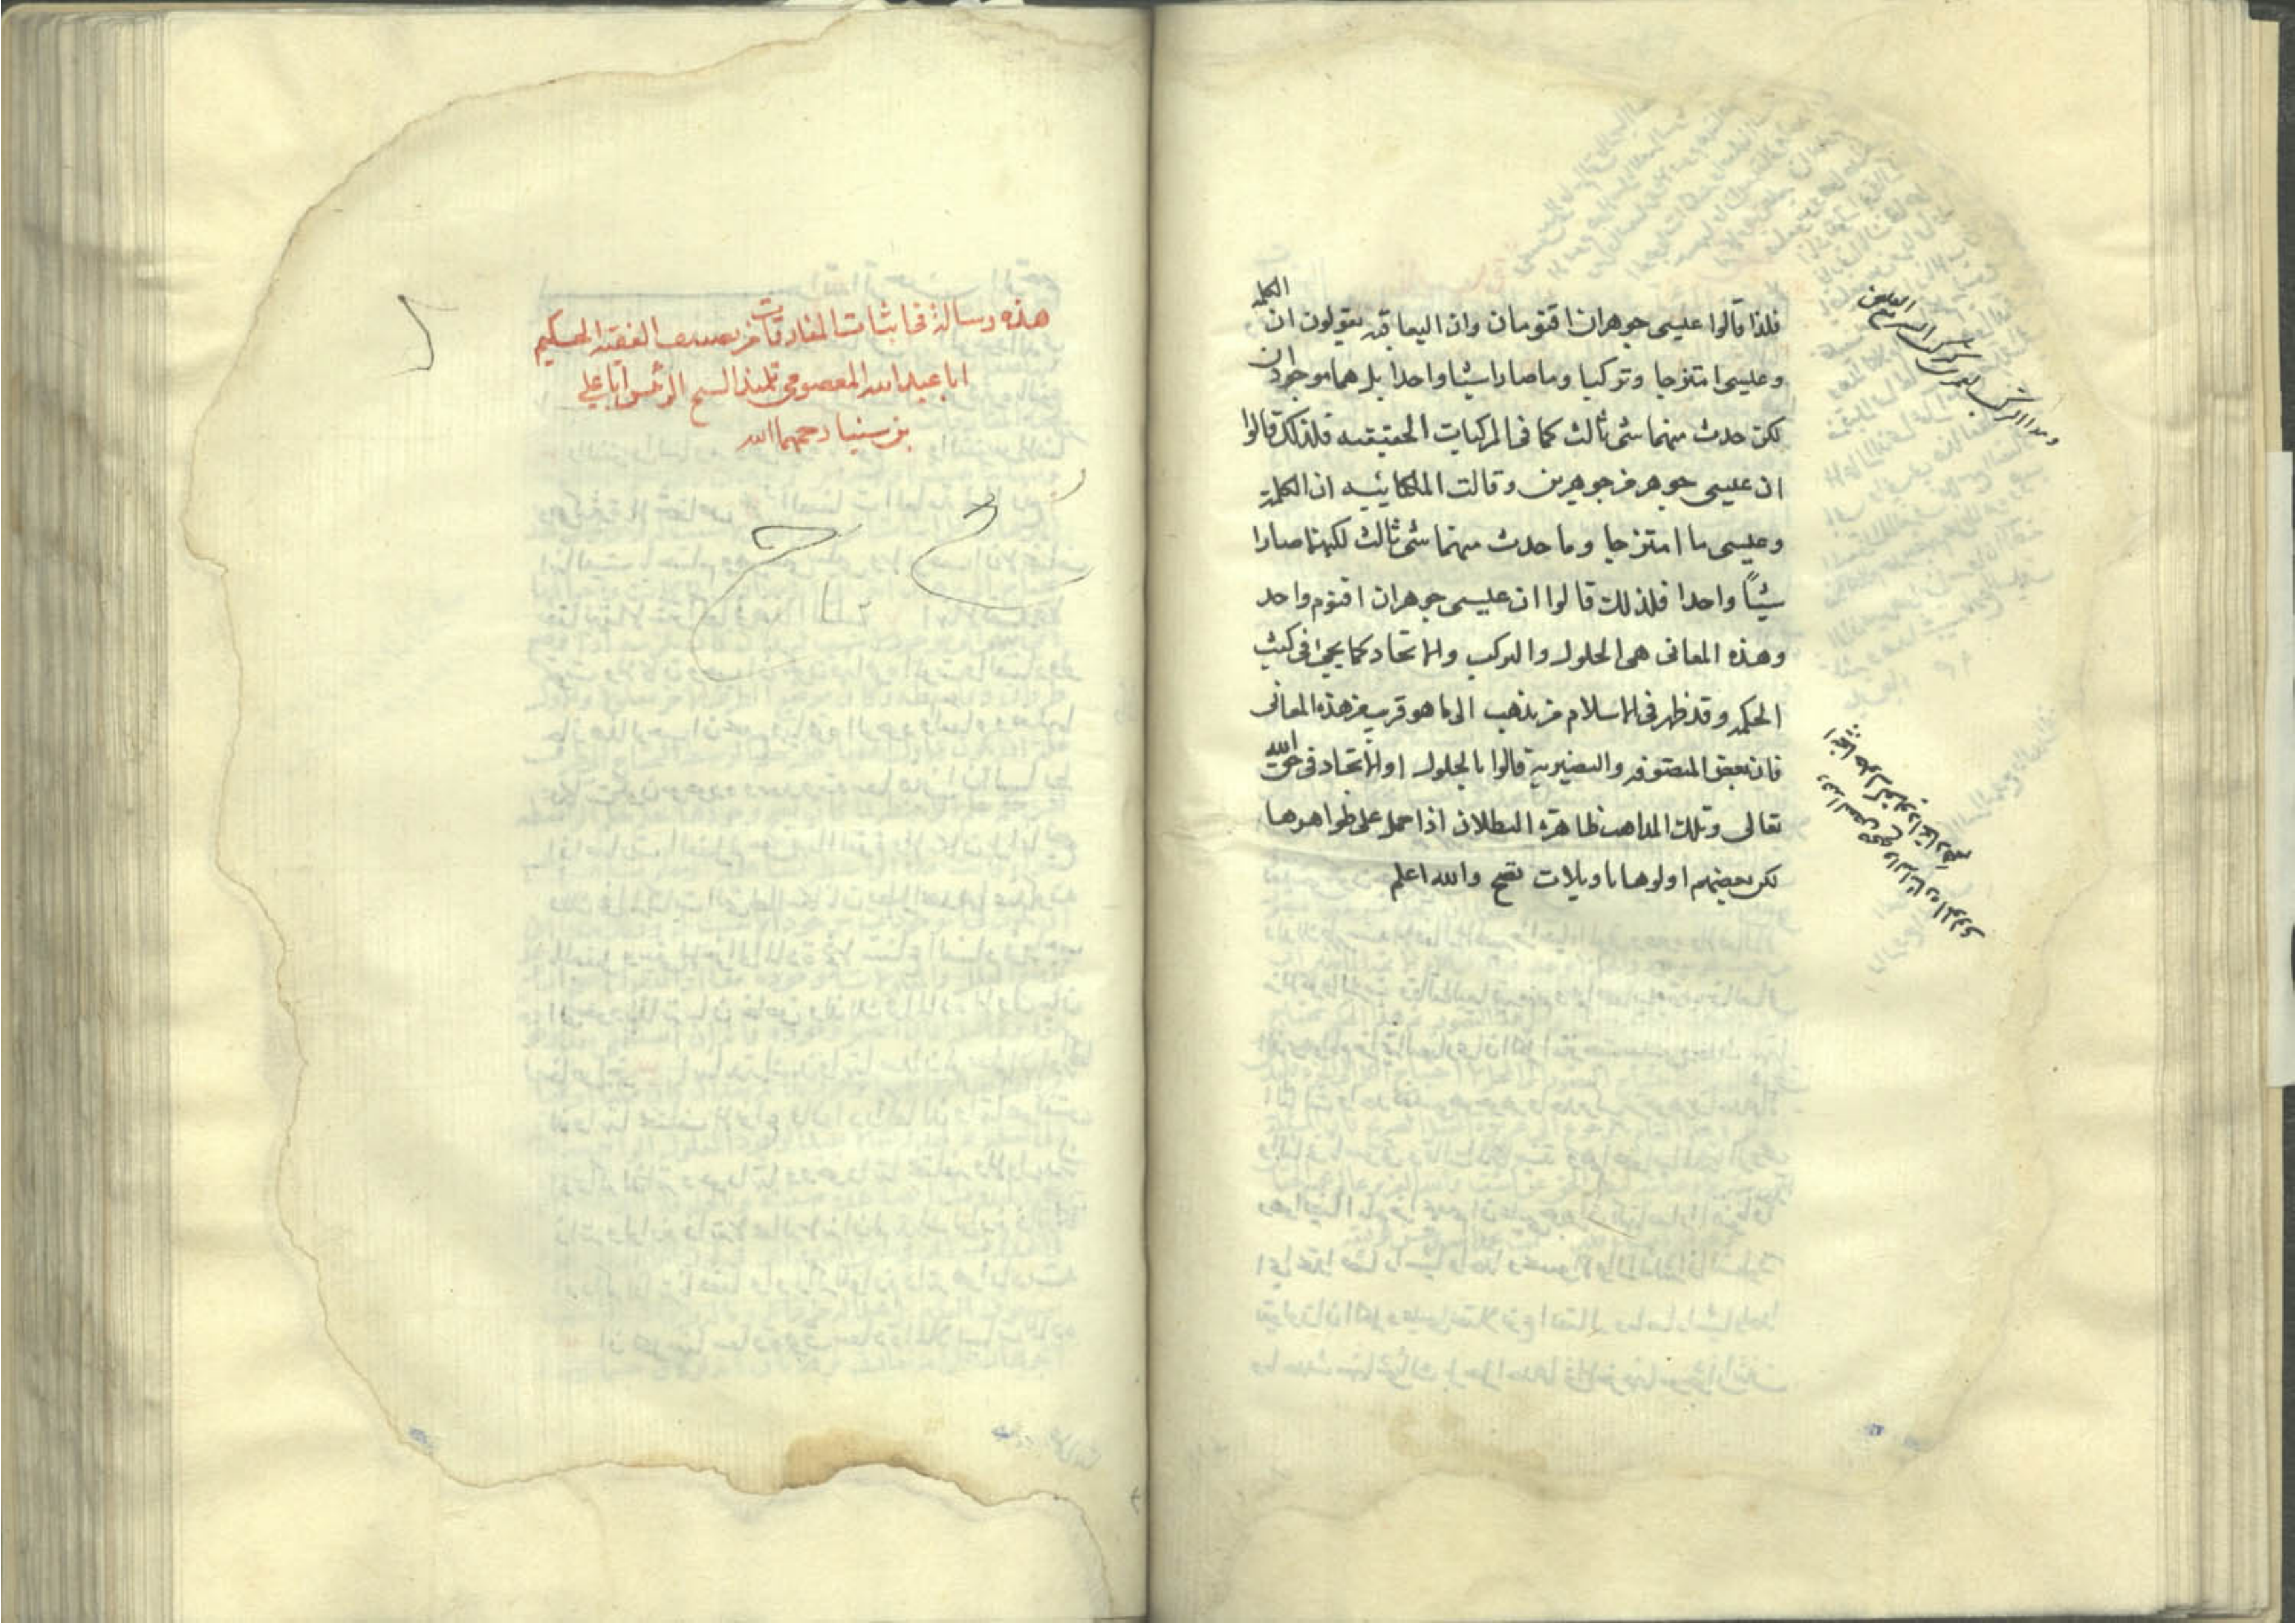 فلذا قالوا عيسى جوهران اقنومان وان اليعاقبه يقولون ان الكلمة
وعيسى امتزجا وتركبا وما صارا شيئا واحدا بل هما موجودان
لكن حدث منهما شئ ثالث كما فى المركبات الحقيقيه فلذلك قالوا
ان عيسى جوهر من جوهرين وقالت الملكائيه ان الكلمة
وعيسى ما امتزجا وما حدث منهما شئ ثالث لكنهما صارا
شيئاً واحدا فلذلك قالوا ان عيسى جوهران اقنوم واحد
وهذه المعانى هى الحلول والتركب والاتحاد كما يجئ فى كتب
الحكمه وقد ظهر فى الاسلام من يذهب الى ما هو قريب من هذه المعانى
فان بعض المتصوفه والنصيرية قالوا بالحلول او الاتحاد فى حق الله
تعالى وتلك المذاهب ظاهرة البطلان اذا حمل على ظواهرها
لكن بعضهم اولوها تاويلات تصح والله اعلم
هذه رسالة فى اثبات المفارقات من تصنيف الفقيه الحكيم
ابا عبد الله المعصومى تلميذ الشيخ الرئيس ابا على
بن سينا رحمهما الله